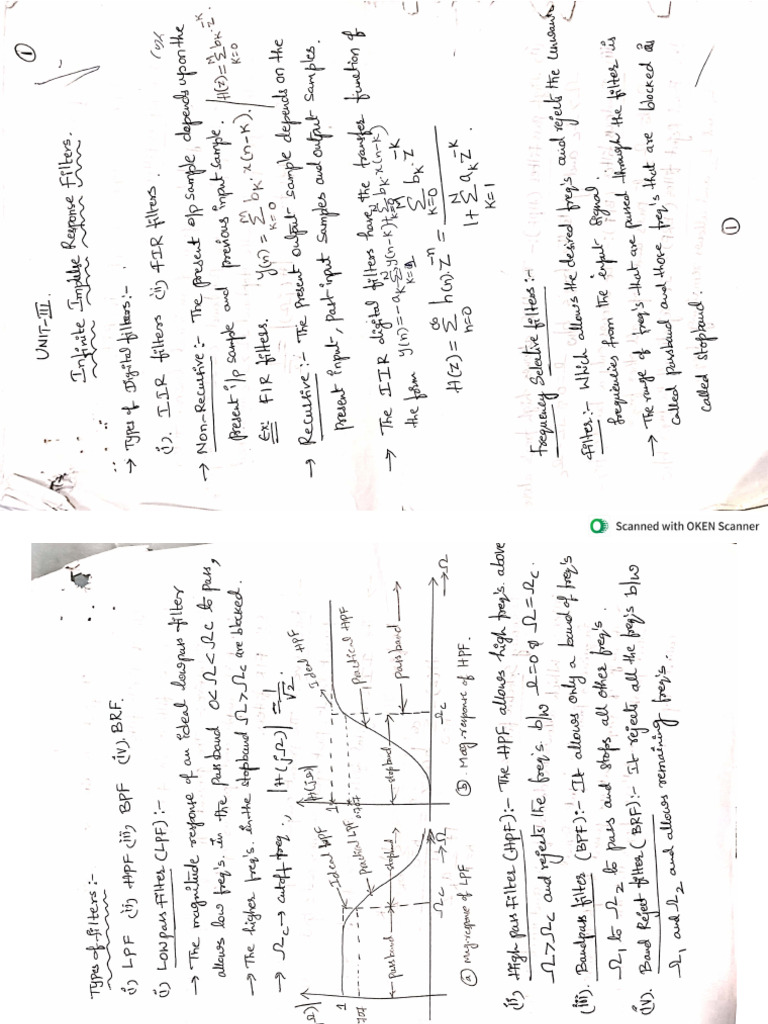 ①
UNIT-III
Infinite Impulse Response Filters.
→ Types of Digital filters:-
(i). IIR filters (ii) FIR filters.
→ Non-Recursive:- The present o/p sample depends upon the
present i/p sample and previous input sample. H(z)=∑_{k=0}^{M} b_k·z^{-k}
Ex FIR filters. y(n) = ∑_{k=0}^{M} b_k·x(n-k).
→ Recursive:- The present output sample depends on the
present input, past input samples and output samples.
→ The IIR digital filters have the transfer function of
the form y(n)=-a_k ∑_{k=1}^{N} y(n-k)+∑_{k=0}^{N} b_k·x(n-k)
H(z)= ∑_{n=0}^{∞} h(n)·z^{-n} = ∑_{k=0}^{M} b_k·z^{-k} / 1+∑_{k=1}^{N} a_k z^{-k}.
Frequency Selective filters:-
filter:- Which allows the desired freq's and rejects the
frequencies from the input signal.
→ The range of freq's that are passed through the filter is
called passband and those freq's that are blocked is
called stopband.
①
Scanned with OKEN Scanner
Types of filters:-
(i) LPF (ii) HPF (iii) BPF (iv). BRF.
(i) Lowpass Filter (LPF):-
→ The magnitude response of an ideal lowpass filter
allows low freq's in the passband 0<Ω<Ωc to pass,
→ The higher freq's in the stopband Ω>Ωc are blocked.
→ Ωc → cutoff freq., |H(jΩ)| = 1/√2.
1
Ideal LPF
Practical LPF
passband
stopband
Ωc
→Ω
ⓐ Mag.response of LPF
|H(jΩ)|
1
0.707
Ideal HPF
Practical HPF
stopband
passband
Ωc
→Ω
ⓑ Mag.response of HPF.
(ii) High pass Filter (HPF):- The HPF allows high freq's above
Ω>Ωc and rejects the freq's b/w Ω=0 & Ω=Ωc.
(iii). Bandpass filter (BPF):- It allows only a band of freq's
Ω1 to Ω2 to pass and stops all other freq's.
(iv). Band Reject filter (BRF):- It rejects all the freq's b/w
Ω1 and Ω2 and allows remaining freq's.